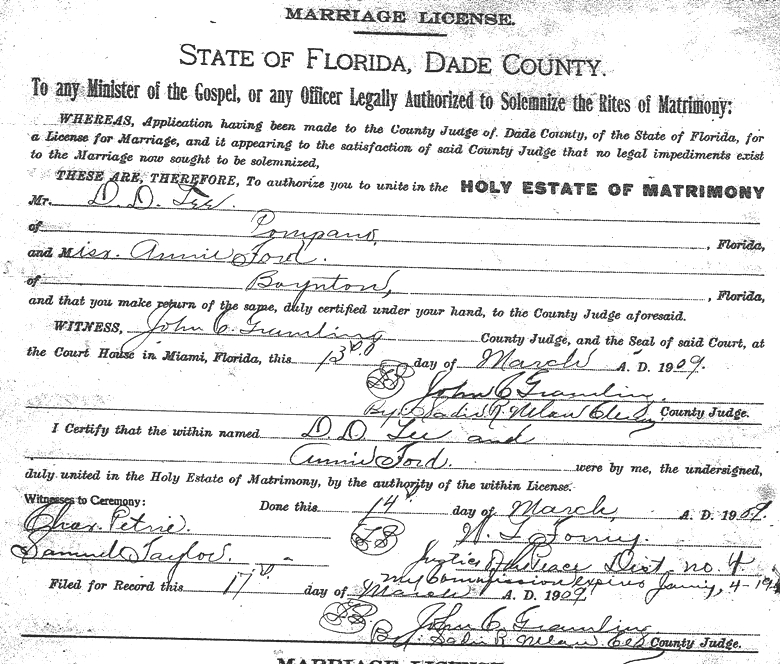 MARRIAGE LICENSE.
STATE OF FLORIDA, DADE COUNTY.
To any Minister of the Gospel, or any Officer Legally Authorized to Solemnize the Rites of Matrimony:
WHEREAS, Application having been made to the County Judge of Dade County, of the State of Florida, for
a License for Marriage, and it appearing to the satisfaction of said County Judge that no legal impediments exist
to the Marriage now sought to be solemnized,
THESE ARE, THEREFORE, To authorize you to unite in the HOLY ESTATE OF MATRIMONY
Mr. D. D. Lee.
of Pompano, , Florida,
and Miss. Annie Ford.
of Boynton, , Florida,
and that you make return of the same, duly certified under your hand, to the County Judge aforesaid.
WITNESS, John C. Gramling County Judge, and the Seal of said Court, at
the Court House in Miami, Florida, this 13 day of March A. D. 1909.
John C Gramling.
By County Judge.
I Certify that the within named D. D. Lee and
Annie Ford. were by me, the undersigned,
duly united in the Holy Estate of Matrimony, by the authority of the within License.
Witnesses to Ceremony: Done this 14 day of March, A. D. 1909.
Chas. Petrie.
Samuel Taylor.
Justice of the Peace Dist. no. 4
my Commission expires
Filed for Record this 17 day of March A. D. 1909
John C Gramling
By County Judge.
MARRIAGE LICENSE